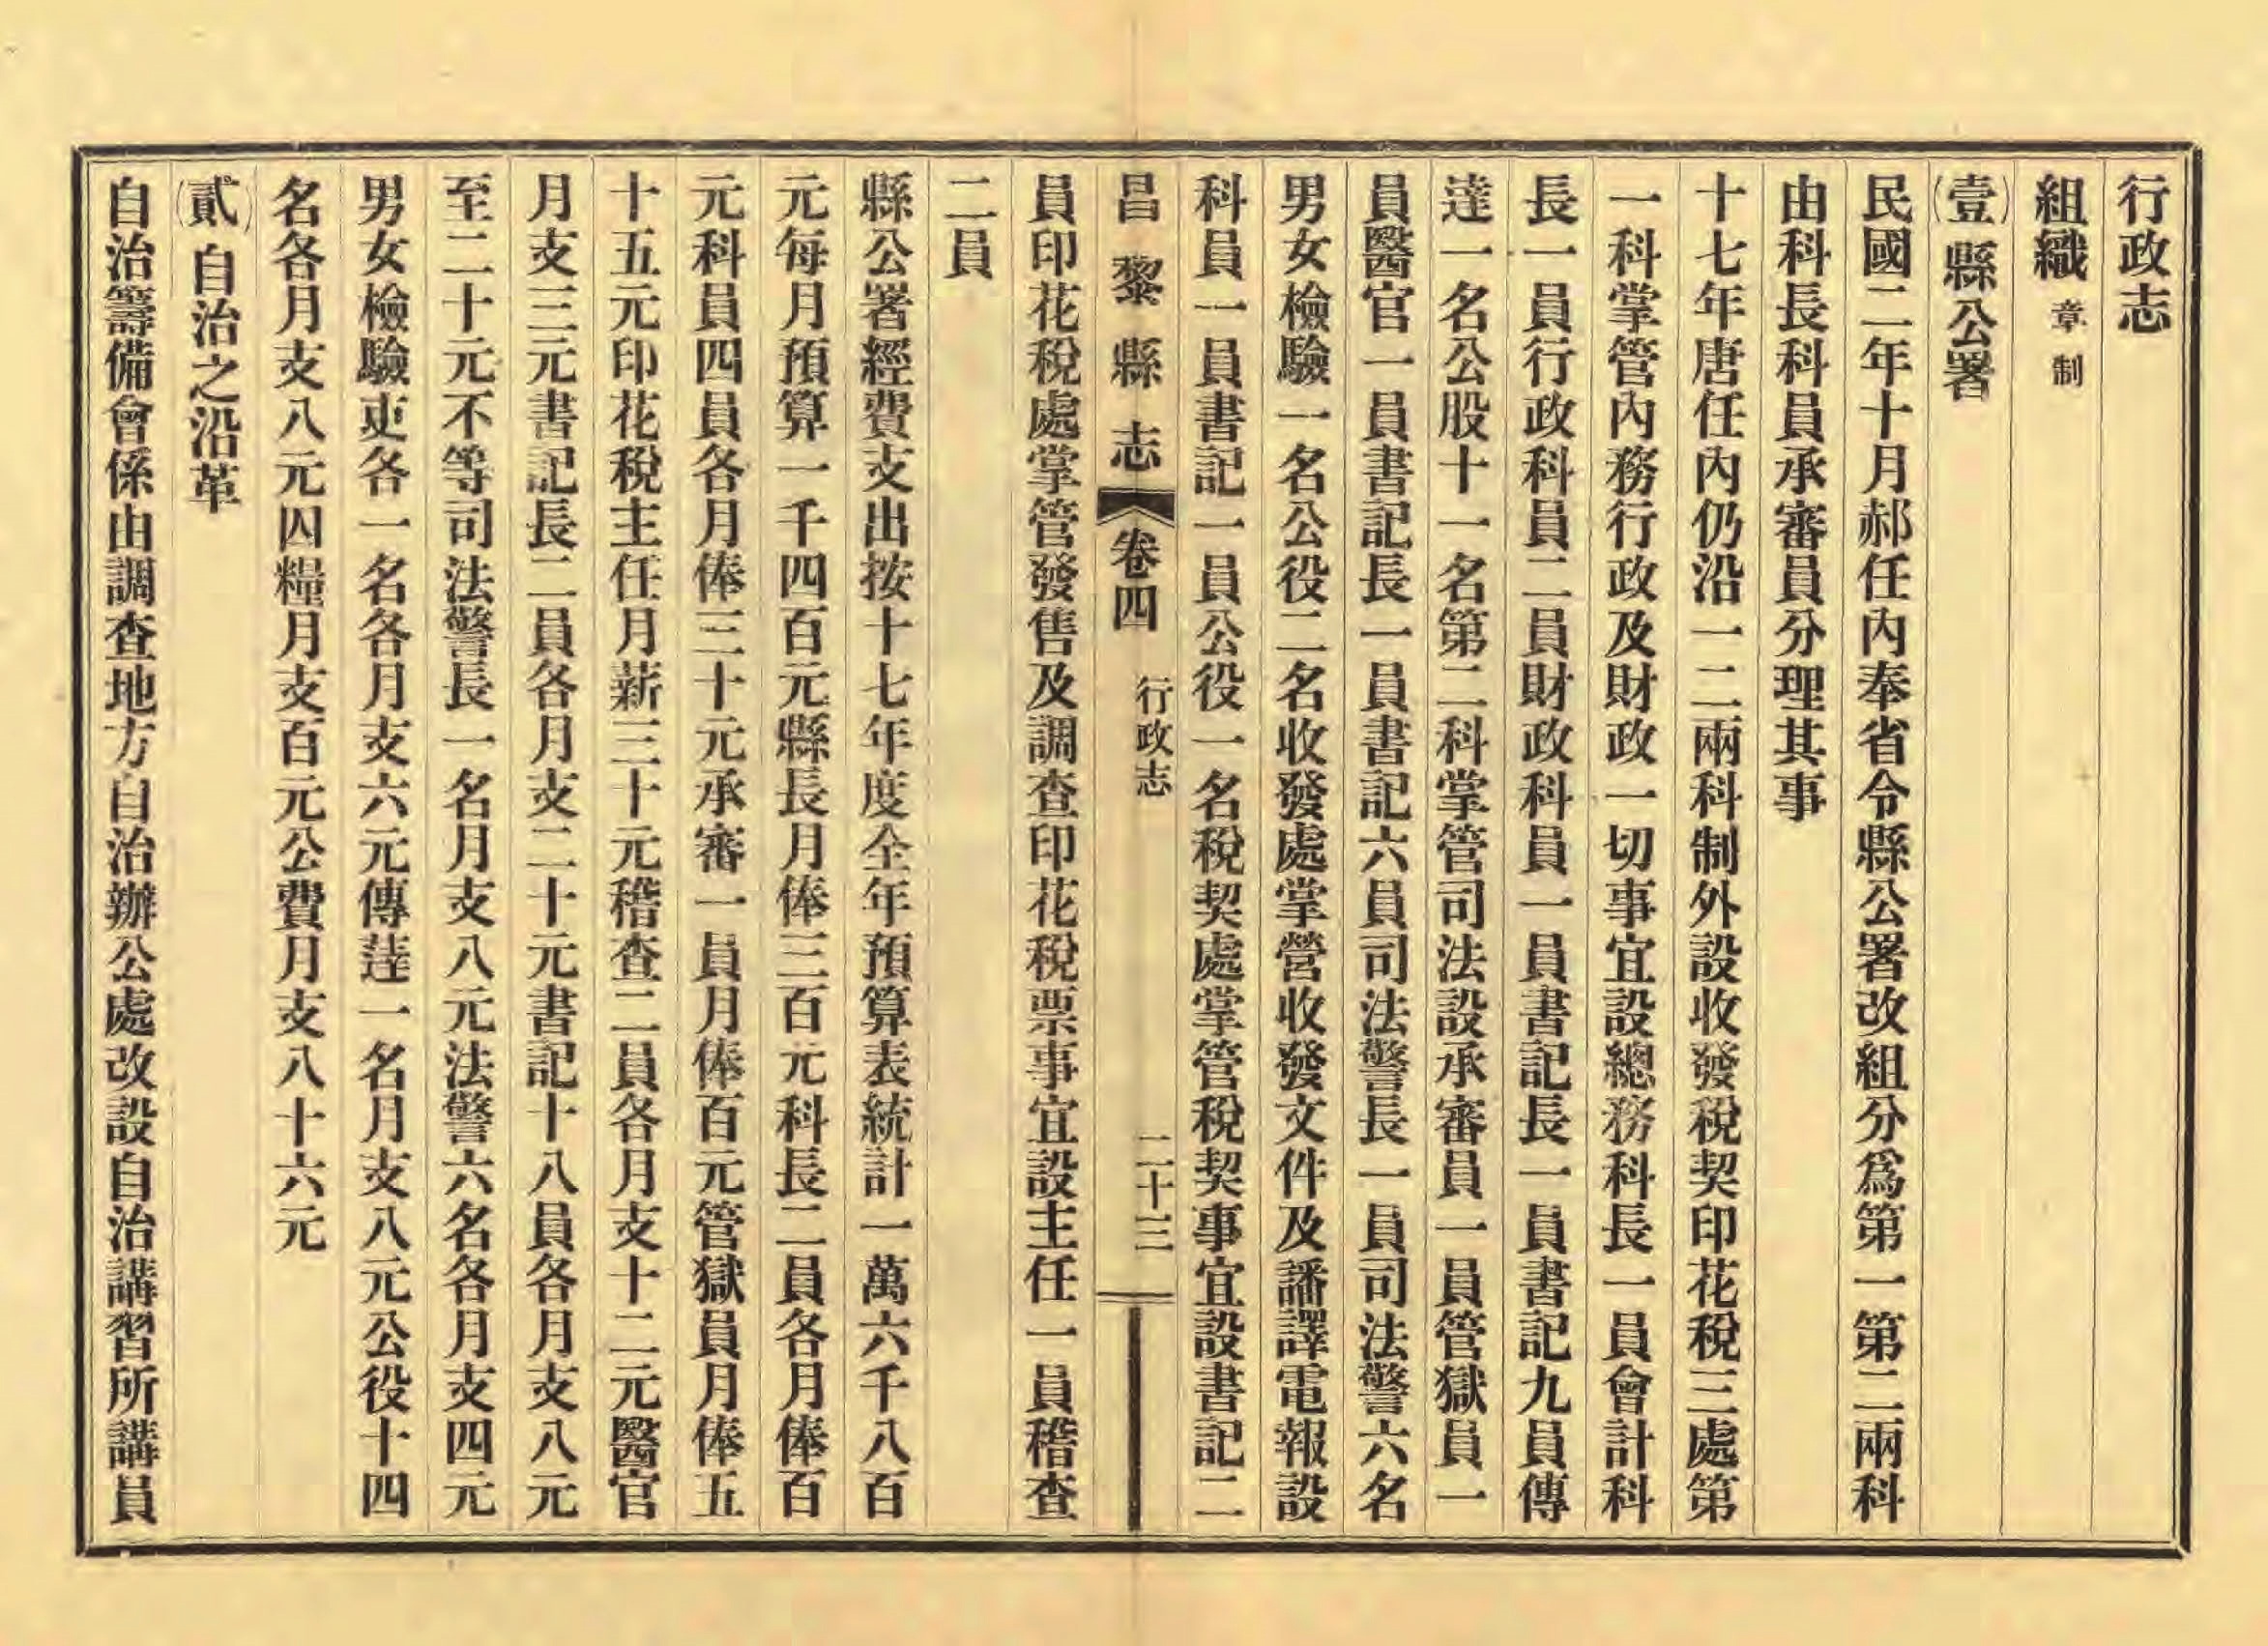 行政志
組織 章制
(壹)縣公署
民國二年十月郝任內奉省令縣公署改組分爲第一第二兩科
由科長科員承審員分理其事
十七年唐任內仍沿一二兩科制外設收發稅契印花稅三處第
一科掌管內務行政及財政一切事宜設總務科長一員會計科
長一員行政科員二員財政科員一員書記長一員書記九員傳
達一名公股十一名第二科掌管司法設承審員一員管獄員一
員醫官一員書記長一員書記六員司法警長一員司法警六名
男女檢驗一名公役二名收發處掌營收發文件及譒譯電報設
科員一員書記一員公役一名稅契處掌管稅契事宜設書記二
昌黎縣志 卷四 行政志 二十三
員印花稅處掌管發售及調查印花稅票事宜設主任一員稽查
二員
縣公署經費支出按十七年度全年預算表統計一萬六千八百
元每月預算一千四百元縣長月俸三百元科長二員各月俸百
元科員四員各月俸三十元承審一員月俸百元管獄員月俸五
十五元印花稅主任月薪三十元稽查二員各月支十二元醫官
月支三元書記長二員各月支二十元書記十八員各月支八元
至二十元不等司法警長一名月支八元法警六名各月支四元
男女檢驗吏各一名各月支六元傳達一名月支八元公役十四
名各月支八元囚糧月支百元公費月支八十六元
(貳)自治之沿革
自治籌備會係由調查地方自治辦公處改設自治講習所講員